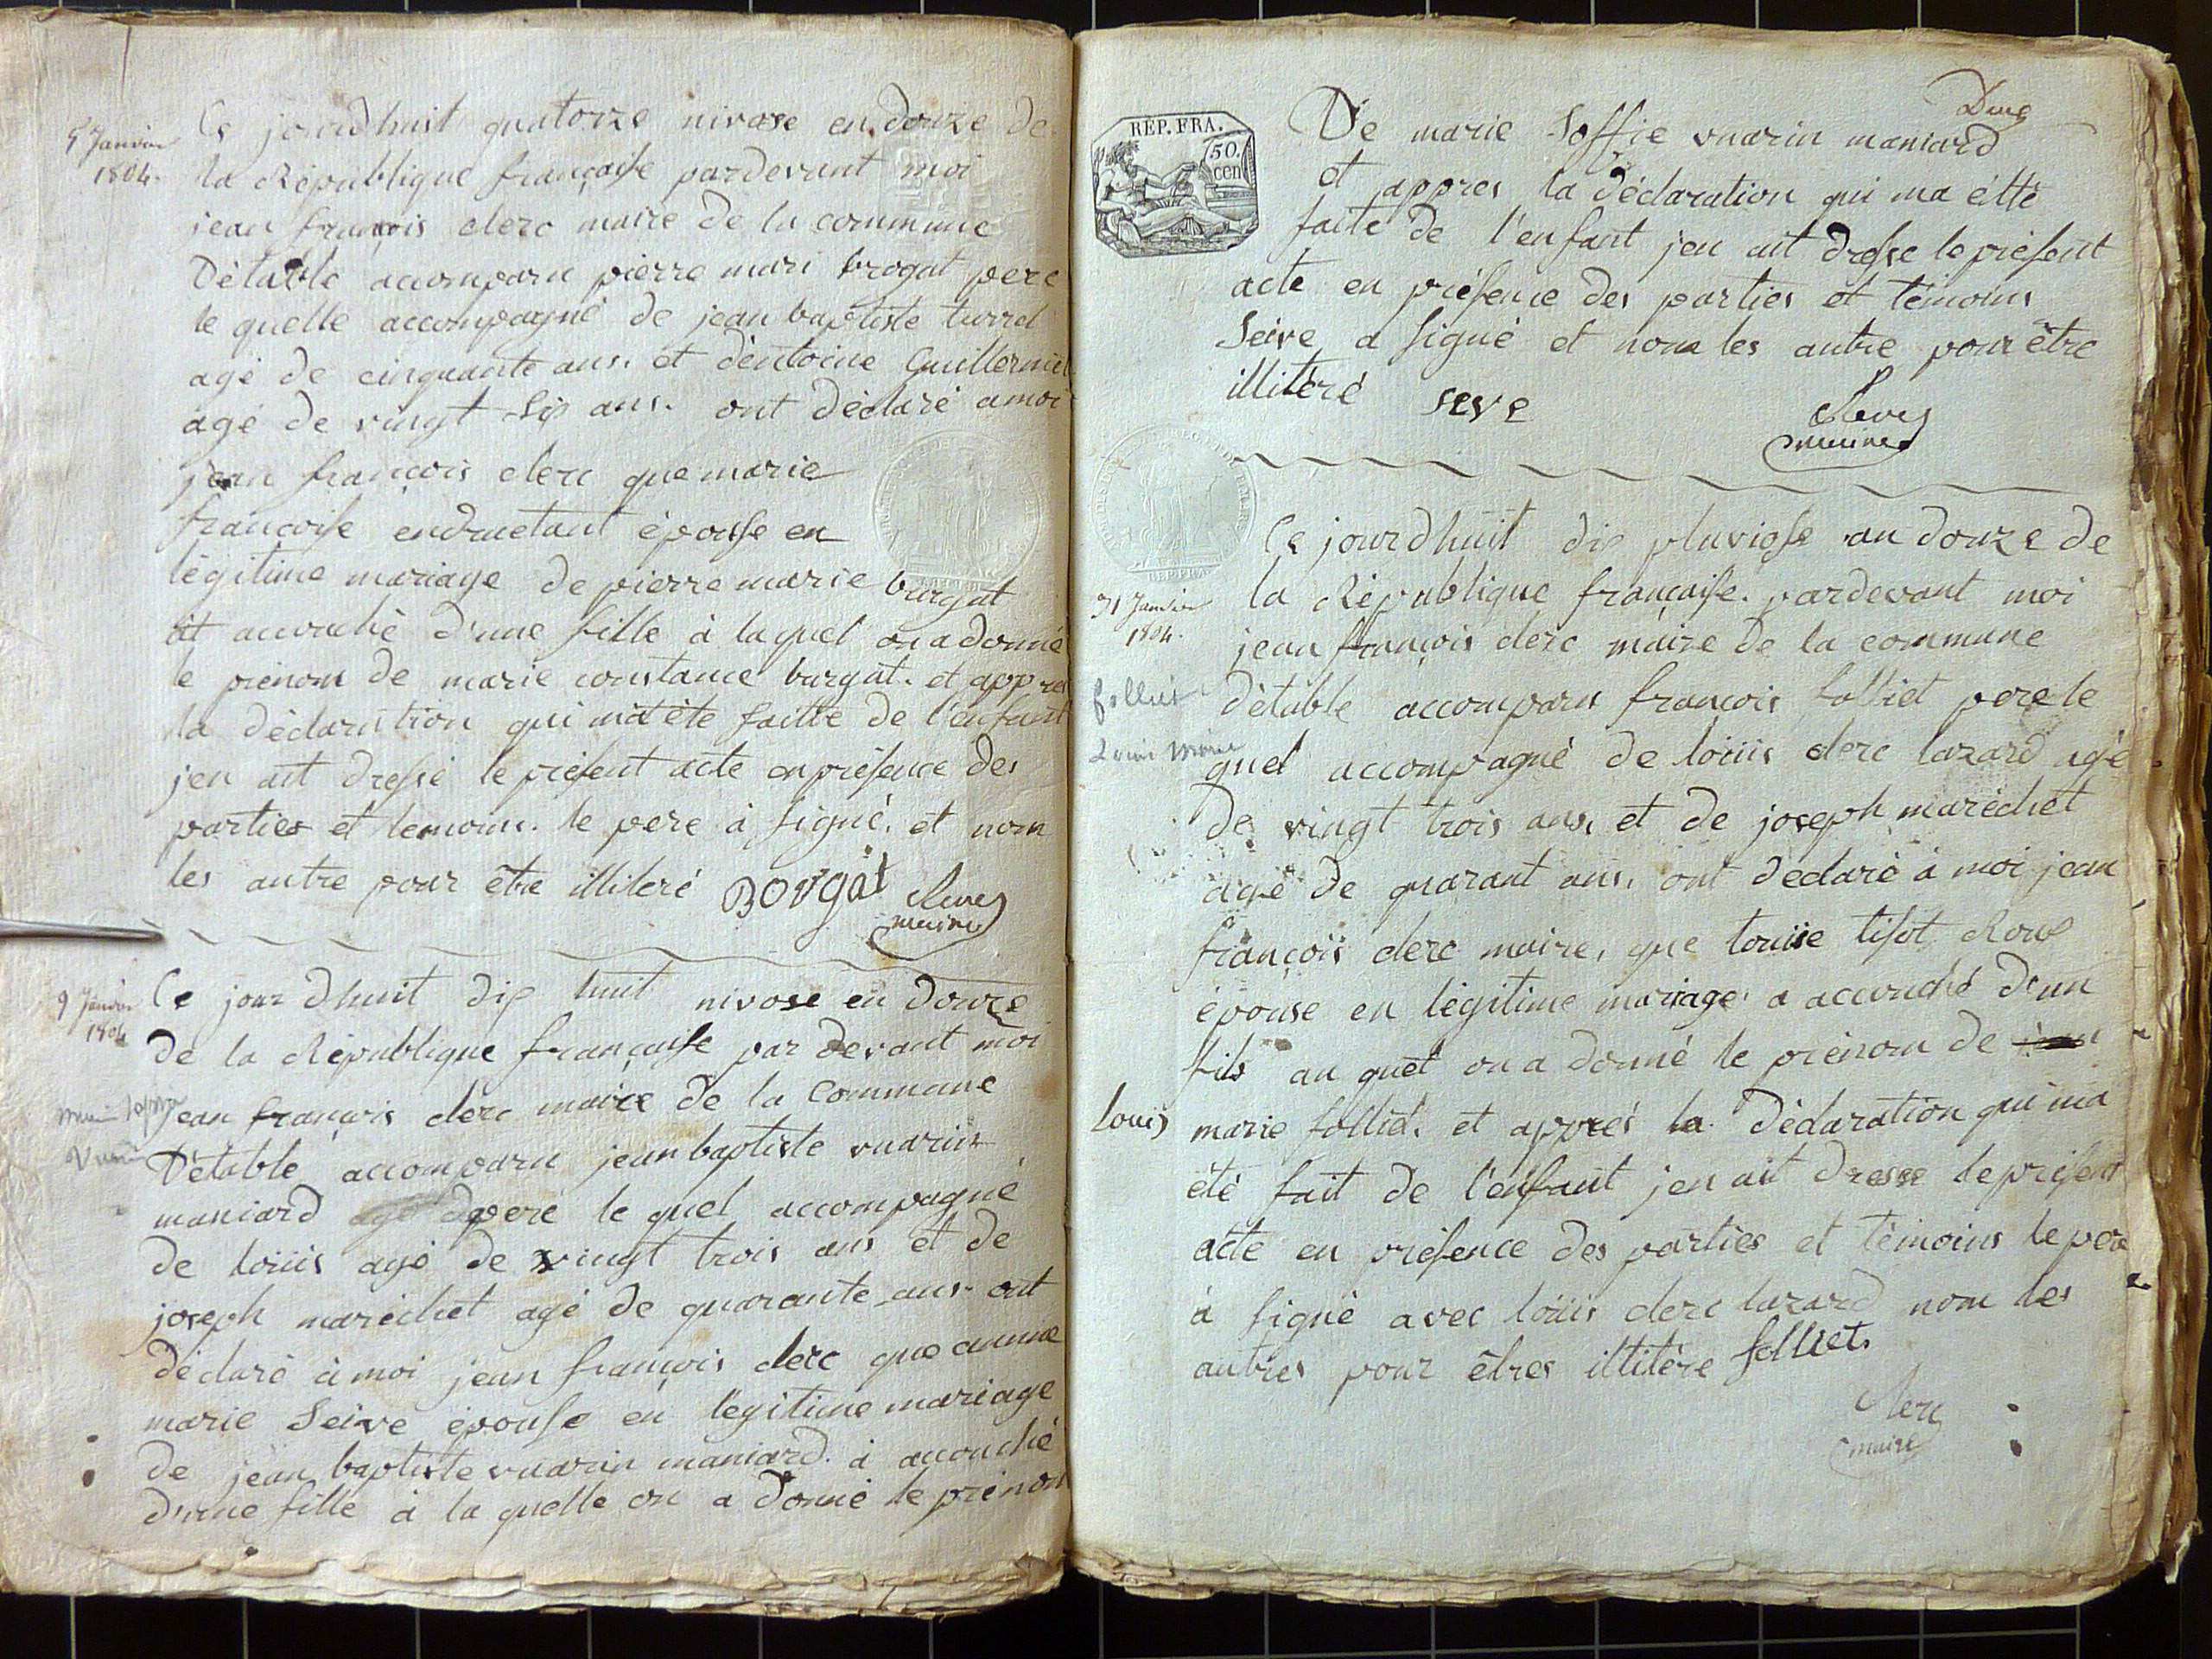 5 Janvier
1804.
Ce jourdhuit quatorze nivose en douze de
la République françaisse pardevant moi
jean françois clerc maire de la commune
Détable accomparu pierre mari brogat pere
le quelle accompagné de jean baptiste
agé de cinquante ans. et dèntoine Guillermi
agé de vingt six ans. ont déclaré a moi
jean françois clerc que marie
françoise épousse en
légitime mariage de pierre marie burgat
at accouchè d'une fille à laquel on a donné
le prenom de marie constance burgat. et appres
la dèclaration qui mat ète faitte de l'enfant
jen ait dressé le présent acte en présence des
parties et temoins. le pere à signé. et nom
les autre pour être illiteré BOVGAt Clerc
maire
9 Janvier
1804
Ce jour dhuit dix huit nivose en douze
de la République françaisse par devant moi
jean françois clerc maire de la Commune
Détable accomparu jean baptiste vuarin
maniard pere le quel accompagné
de loüis agé de vingt trois ans et de
joseph maréchet agé de quarante ans ont
déclaré à moi jean françois clerc que anne
marie Seive épouse en légitime mariage
de jean baptiste vuarin maniard. à accouché
d'une fille à la quelle on a donné le prénom
RÉP. FRA.
50.
cent
De marie Soffie vuarin maniard
et appres la déclaration qui ma étté
faite de l'enfant jen ait dresse le présent
acte en présence des parties et témoins
Seive a signé et nom les autre pour être
illitéré SEVE Clerc
maire
31 Janvier
1804.
folliet
Louis Marie
Ce jourdhuit dix pluviosse an douze de
la République françaisse. pardevant moi
jean françois clerc maire de la commune
détable accomparu françois folliet pere le
quel accompagné de loüis clerc lazard agé
de vingt trois ans, et de joseph maréchet
agé de quarant ans, ont declaré à moi jean
françois clerc maire, que louise tisot Roux
épouse en légitime mariage, a accouché d'un
fils au quel on a donné le prénom de
louis marie folliet. et apprés la déclaration qui ma
été fait de l'enfant jen ait dresse le présent
acte en présence des parties et témoins le pere
à signé avec loüis clerc lazard nom les
autres pour êtres illitére folliet
Clerc
maire